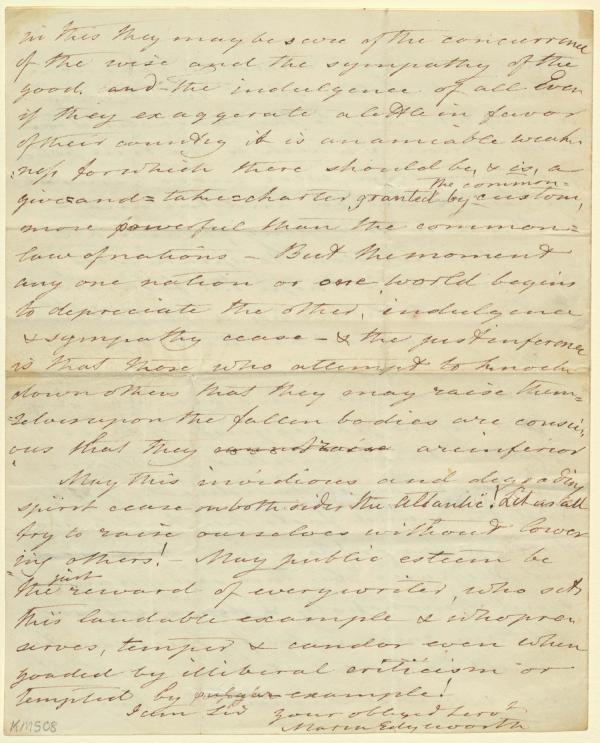 in this they may be secure of the concurrence
of the wise and the sympathy of the
good. and the indulgence of all Even
if they exaggerate a little in favor
of their country it is an amiable weak-
-ness for which there should be, & is, a
the common-
give=and=take=charter, granted by custom,
more powerful than the common=
law of nations – But the moment
any one nation or one world begins
to depreciate the other, indulgence
& sympathy cease – & the just inference
is that those who attempt to knock
down others that they may raise them=
=selves upon the fallen bodies are consci-
ous that they are inferior
May this invidious and degrading
spirit cease on both sides the Atlantic! Let us all
try to raise ourselves without lower
ing others! – May public esteem be
just
the reward of every writer, who sets
this laudable example & who pre
serves, temper & candor even when
goaded by illiberal criticism or
tempted by vulgar example!
I am Sir your obliged Servt
Maria Edgeworth
KMSC8